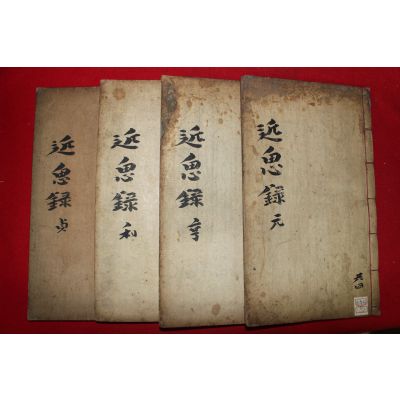 近思錄 元
共四
近思錄 亨
近思錄 利
近思錄 貞